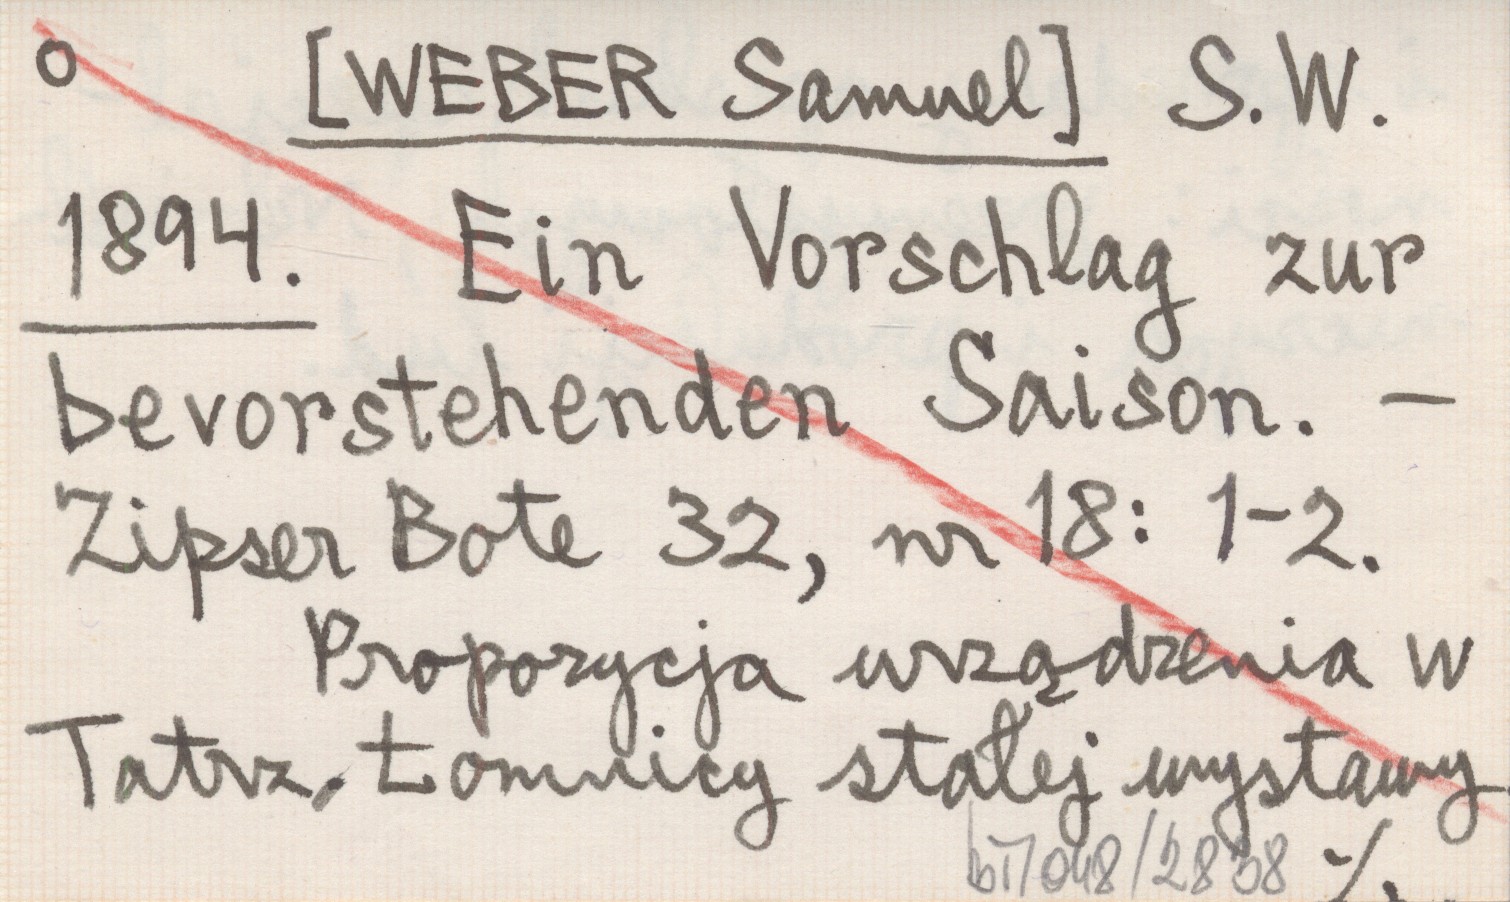 o [WEBER Samuel] S.W.
1894. Ein Vorschlag zur
bevorstehenden Saison. –
Zipser Bote 32, nr 18: 1-2.
Propozycja urządzenia w
Tatrz. Łomnicy stałej wystawy
bT/048/2838 ·/.